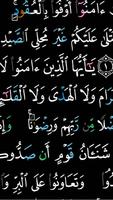 ءَامَنُوٓا۟ أَوْفُوا۟ بِٱلْعُقُودِ
يُتْلَىٰ عَلَيْكُمْ غَيْرَ مُحِلِّى ٱلصَّيْدِ
يَٰٓأَيُّهَا ٱلَّذِينَ ءَامَنُوا۟
ٱلْحَرَامَ وَلَا ٱلْهَدْىَ وَلَا ٱلْقَلَٰٓئِدَ
مِّن رَّبِّهِمْ وَرِضْوَٰنًا
شَنَـَٔانُ قَوْمٍ أَن صَدُّوكُمْ
وَتَعَاوَنُوا۟ عَلَى ٱلْبِرِّ وَٱلتَّقْوَىٰ